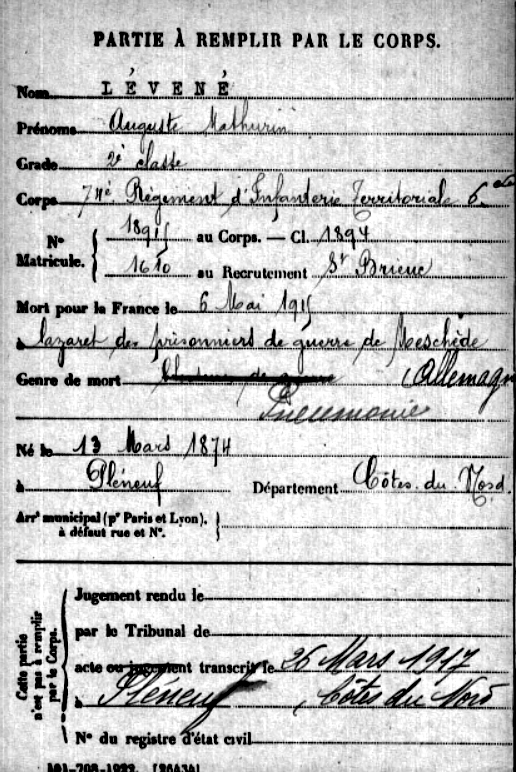 PARTIE À REMPLIR PAR LE CORPS.
Nom LÉVENÉ
Prénoms Auguste Mathurin
Grade 2è classe
Corps 74è Régiment d'Infanterie Territoriale 6 cie
N° Matricule. { 18915 au Corps. — Cl. 1894
1610 au Recrutement St Brieuc
Mort pour la France le 6 Mai 1915
à lazaret des prisonniers de guerre de Meschède
Genre de mort (Allemagne
Pneumonie
Né le 13 Mars 1874
à Pléneuf Département Côtes du Nord
Arrt municipal (pr Paris et Lyon), }
à défaut rue et N°.
Cette partie n'est pas à remplir par le Corps. {
Jugement rendu le
par le Tribunal de
acte ou jugement transcrit le 26 Mars 1917
à Pléneuf Côtes du Nord
N° du registre d'état civil
101-708-1922. [26434]